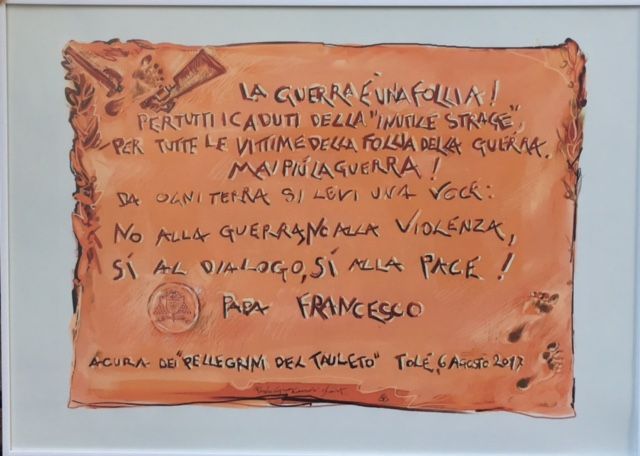 LA GUERRA È UNA FOLLIA!
PER TUTTI I CADUTI DELLA "INUTILE STRAGE",
PER TUTTE LE VITTIME DELLA FOLLIA DELLA GUERRA.
MAI PIÙ LA GUERRA!
DA OGNI TERRA SI LEVI UNA VOCE:
NO ALLA GUERRA, NO ALLA VIOLENZA,
SÍ AL DIALOGO, SÍ ALLA PACE!
PAPA FRANCESCO
A CURA DEI "PELLEGRINI DEL TAULETO" TOLÉ, 6 AGOSTO 2017